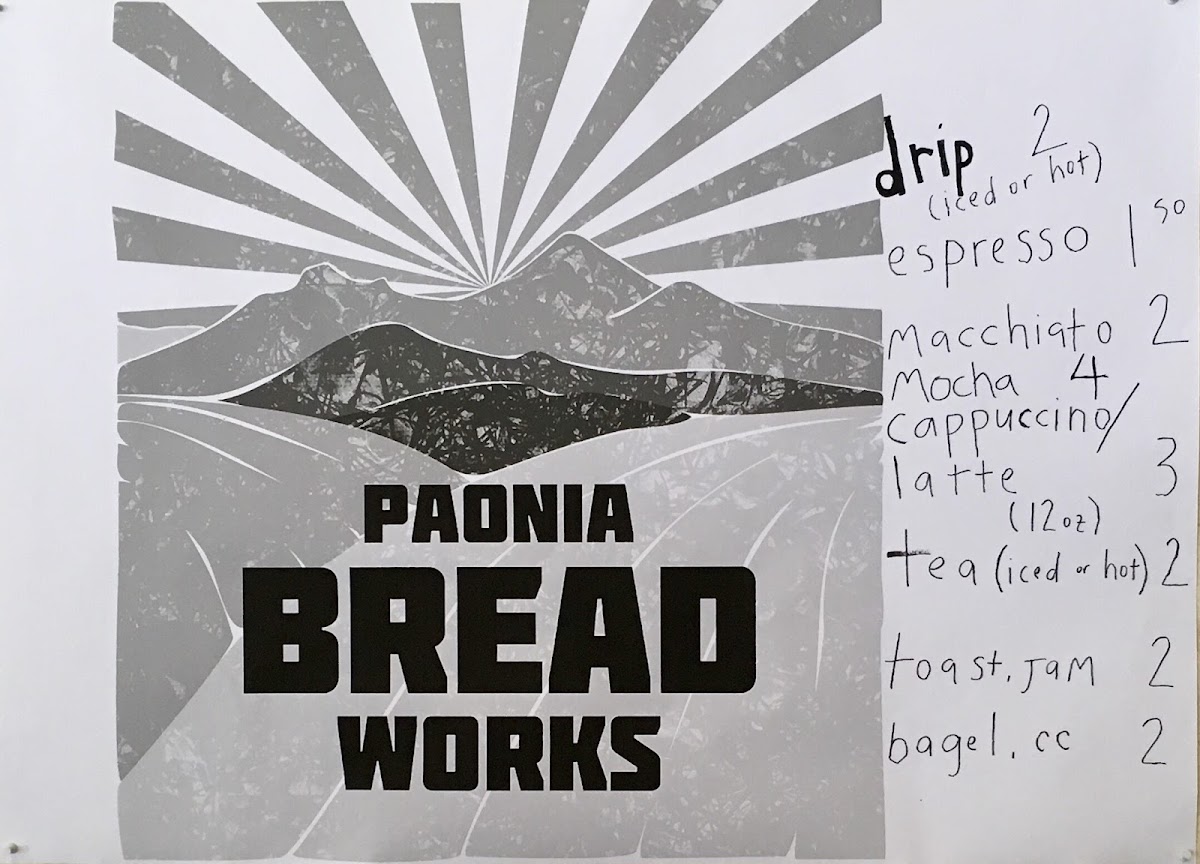 PAONIA
BREAD
WORKS
drip 2
(iced or hot)
espresso 1 50
macchiato 2
mocha 4
cappuccino/
latte 3
(12oz)
tea (iced or hot) 2
toast. Jam 2
bagel. cc 2